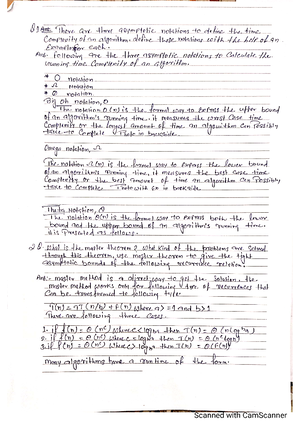 There are three asymptotic notations to define the time
Complexity of an algorithm define these notations with the help of an
Example each.
Ans- Following are the three asymptotic notations to Calculate the
running time Complexity of an algorithm.
* O notation
* Ω notation
* θ notation
Big Oh notation, O
The notation O(n) is the formal way to express the upper bound
of an algorithm's running time. it measures the worst Case time
Complexity or the longest amount of time an algorithm Can possibly
take to Complete
Omega notation, Ω
The notation Ω(n) is the formal way to express the lower bound
of an algorithm's running time, it measures the best Case time
Complexity or the best amount of time an algorithm Can possibly
take to Complete
Theta notation, θ
The notation θ(n) is the formal way to express both the lower
bound and the upper bound of an algorithm's running time.
it is represented as follows.
What is the master theorem? What kind of the problems are solved
through this theorem, use master theorem to give the tight
asymptotic bounds of the following recurrence relation
Ans:- master method is a direct way to get the solution. the
master method works only for following type of recurrences that
Can be transformed to following type.
T(n) = aT(n/b) + f(n) where a>=1 and b>1
There are following three Cases.
1. if f(n) = θ(n^c) where c < log_b a then T(n) = θ(n^log_b a)
2. if f(n) = θ(n^c) where c = log_b a then T(n) = θ(n^c log n)
3. if f(n) = θ(n^c) where c > log_b a then T(n) = θ(f(n))
many algorithms have a runtime of the form
Scanned with CamScanner